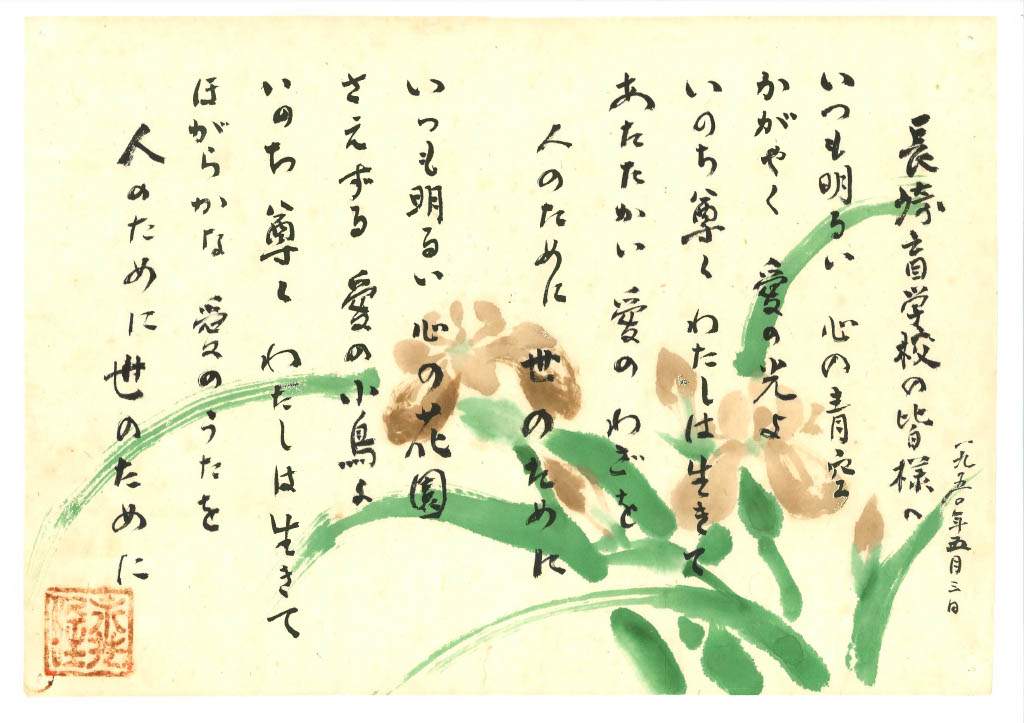 長崎盲学校の皆様へ
一九五〇年五月三日
いつも明るい 心の青空
かがやく 愛の光よ
いのち尊く わたしは生きて
あたたかい 愛の わざを
人のために 世のために
いつも明るい 心の花園
さえずる 愛の小鳥よ
いのち尊く わたしは生きて
ほがらかな 愛のうたを
人のために世のために